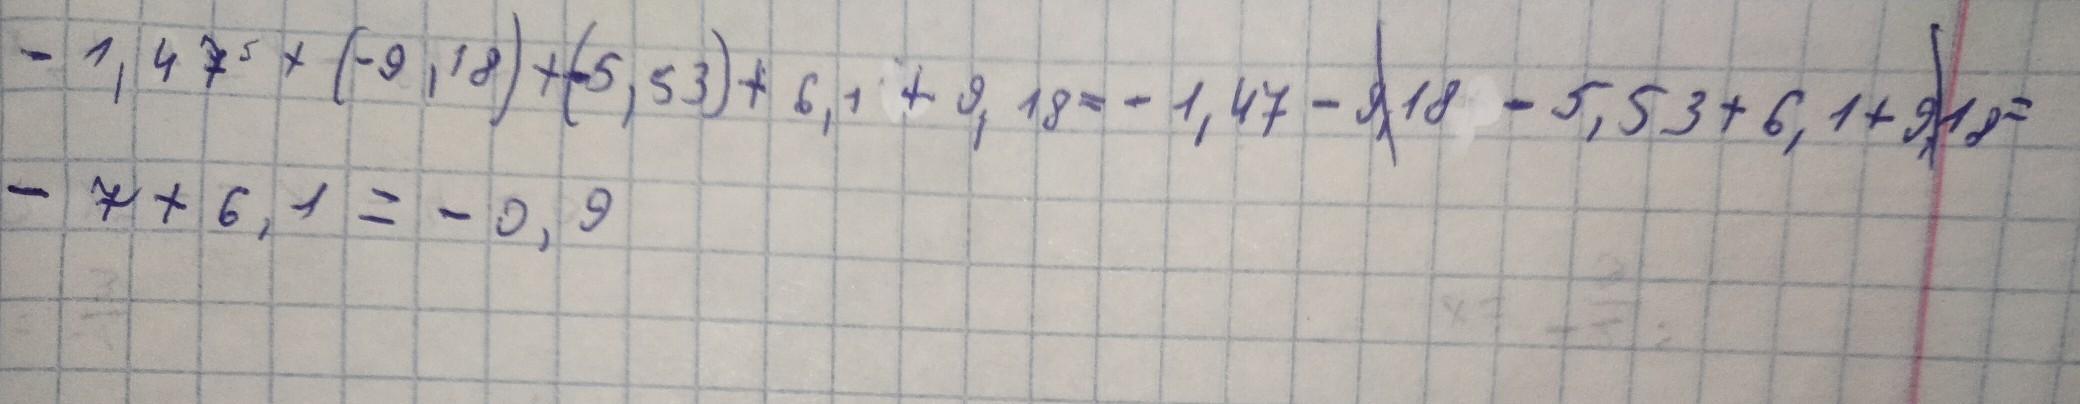 - 1,47 + (-9,18) + (-5,53) + 6,1 + 9,18 = - 1,47 - 9,18 - 5,53 + 6,1 + 9,18 =
- 7 + 6,1 = - 0,9